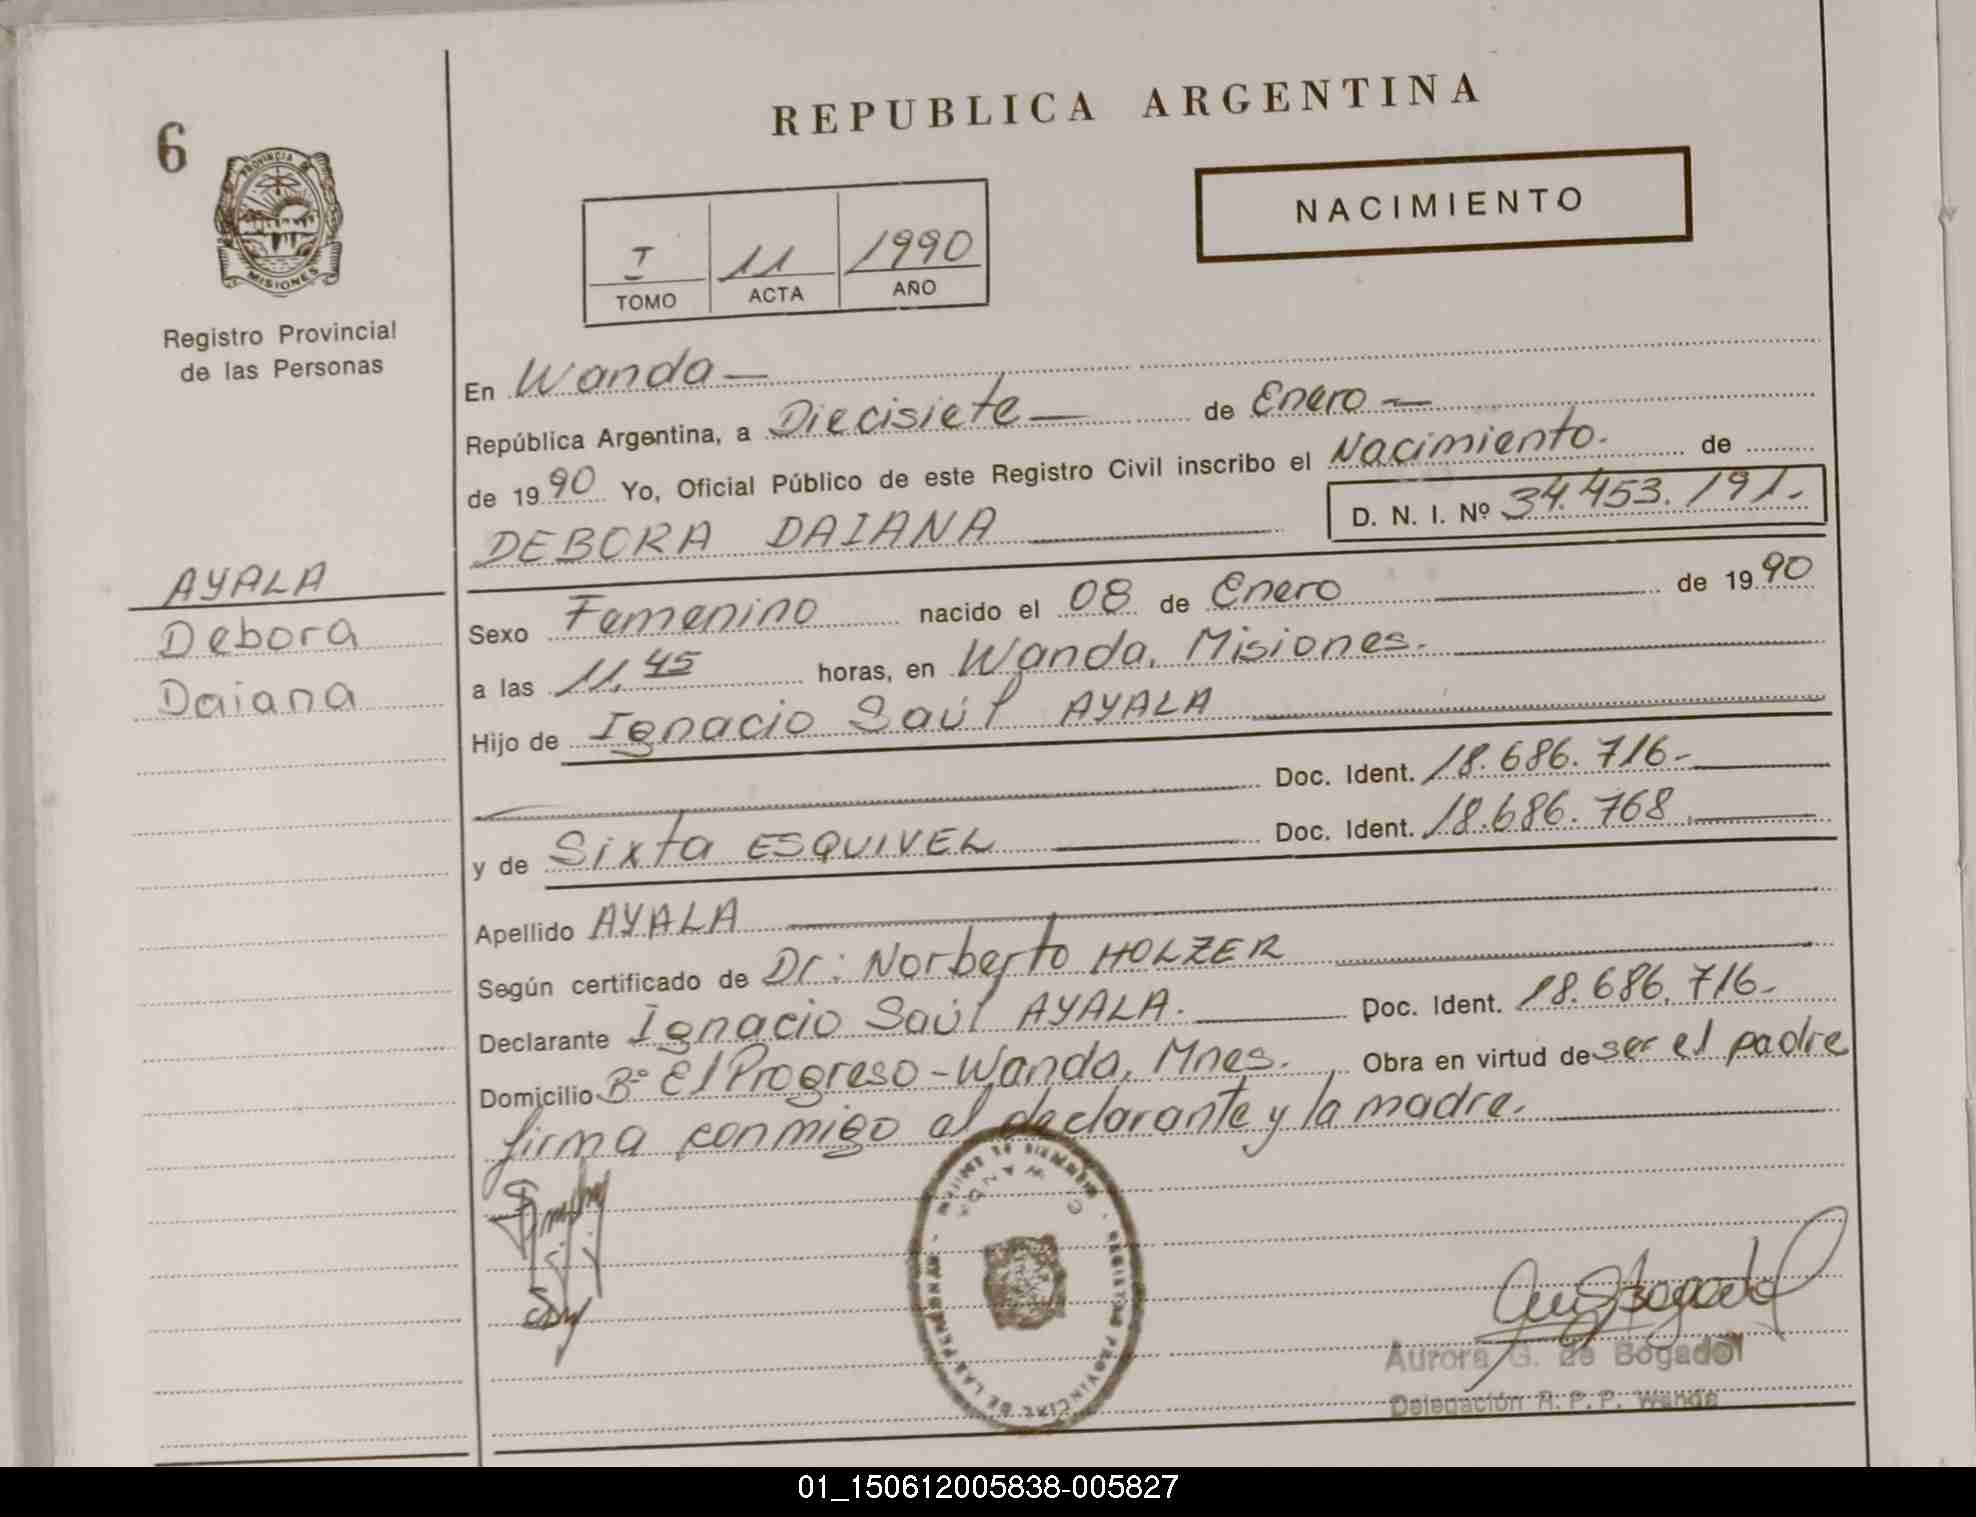 6
PROVINCIA DE
MISIONES
Registro Provincial
de las Personas
AYALA
Debora
Daiana
REPUBLICA ARGENTINA
NACIMIENTO
I 11 1990
TOMO ACTA AÑO
En Wanda
República Argentina, a Diecisiete de Enero
de 1990 Yo, Oficial Público de este Registro Civil inscribo el Nacimiento. de
DEBORA DAIANA D. N. I. Nº 34.453.191.
Sexo Femenino nacido el 08 de Enero de 1990
a las 11,45 horas, en Wanda, Misiones.
Hijo de Ignacio Saúl AYALA
Doc. Ident. 18.686.716.
y de Sixta ESQUIVEL Doc. Ident. 18.686.768
Apellido AYALA
Según certificado de Dr: Norberto HOLZER
Declarante Ignacio Saúl AYALA. Doc. Ident. 18.686.716.
Domicilio Bº El Progreso - Wanda, Mnes. Obra en virtud de ser el padre
firma conmigo el declarante y la madre.
REGISTRO PROVINCIAL DE LAS PERSONAS
WANDA
Aurora G. de Bogado
Delegación R. P. P. Wanda
01_150612005838-005827